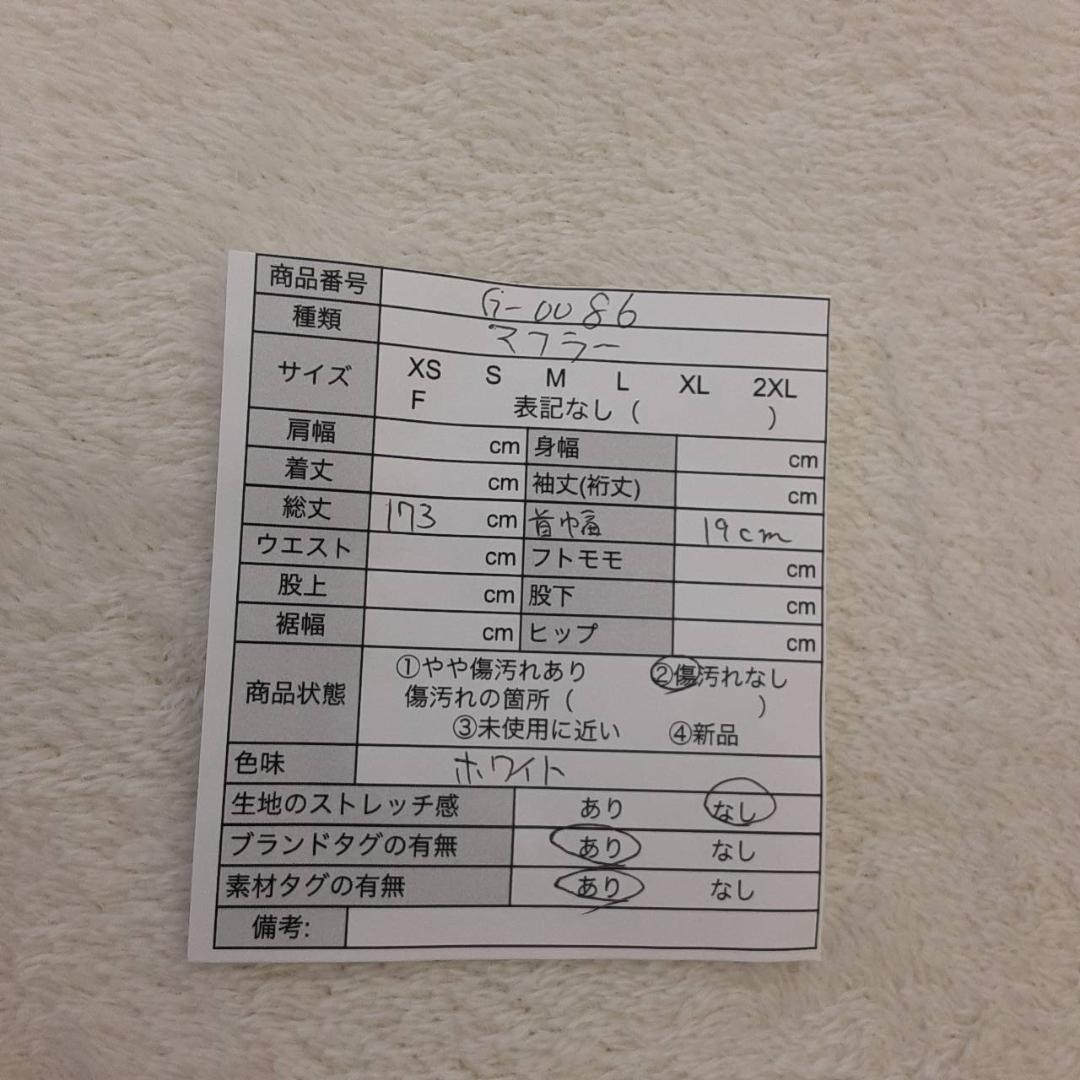 商品番号 G-0086
種類 マフラー
サイズ XS S M L XL 2XL
F 表記なし ( )
肩幅 cm 身幅 cm
着丈 cm 袖丈(裄丈) cm
総丈 173 cm 首巾畐 19cm
ウエスト cm フトモモ cm
股上 cm 股下 cm
裾幅 cm ヒップ cm
商品状態 ①やや傷汚れあり ②傷汚れなし
傷汚れの箇所 ( )
③未使用に近い ④新品
色味 ホワイト
生地のストレッチ感 あり なし
ブランドタグの有無 あり なし
素材タグの有無 あり なし
備考: